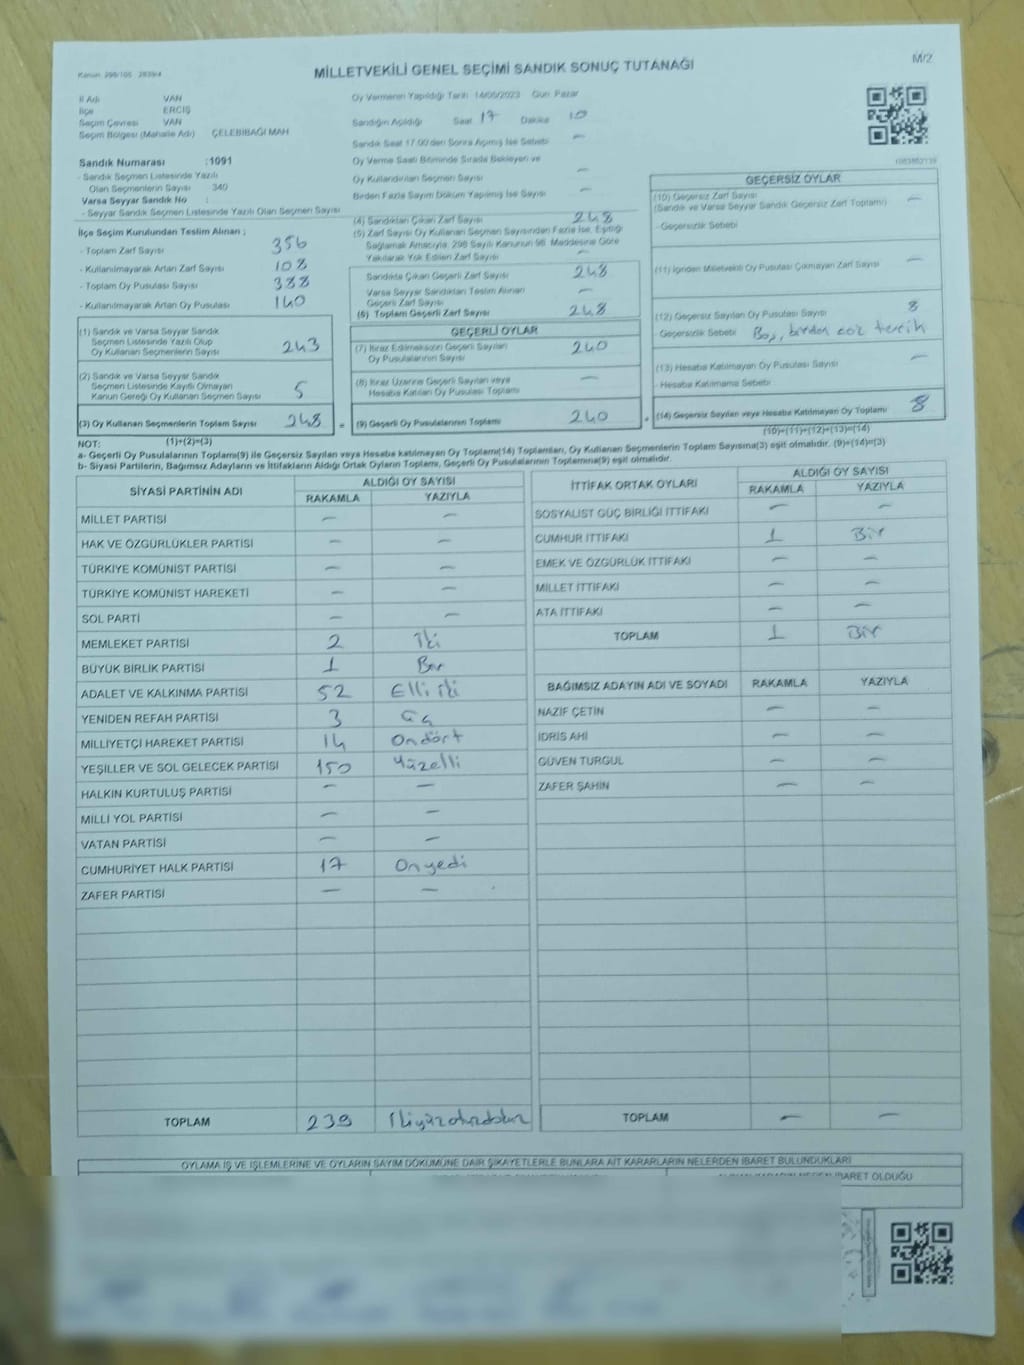 Kanun: 298/105 2839/4
MİLLETVEKİLİ GENEL SEÇİMİ SANDIK SONUÇ TUTANAĞI
M/2
İl Adı VAN
İlçe ERCİŞ
Seçim Çevresi VAN
Seçim Bölgesi (Mahalle Adı) ÇELEBİBAĞI MAH
Sandık Numarası :1091
- Sandık Seçmen Listesinde Yazılı
Olan Seçmenlerin Sayısı : 340
Varsa Seyyar Sandık No :
- Seyyar Sandık Seçmen Listesinde Yazılı Olan Seçmen Sayısı
Oy Vermenin Yapıldığı Tarih 14/05/2023 Gün Pazar
Sandığın Açıldığı Saat 17 Dakika 10
Sandık Saat 17.00'den Sonra Açılmış İse Sebebi —
Oy Verme Saati Bitiminde Sırada Bekleyen ve
Oy Kullandırılan Seçmen Sayısı —
Birden Fazla Sayım Döküm Yapılmış İse Sayısı —
İlçe Seçim Kurulundan Teslim Alınan ;
- Toplam Zarf Sayısı 356
- Kullanılmayarak Artan Zarf Sayısı 108
- Toplam Oy Pusulası Sayısı 388
- Kullanılmayarak Artan Oy Pusulası 140
(1) Sandık ve Varsa Seyyar Sandık
Seçmen Listesinde Yazılı Olup
Oy Kullanan Seçmenlerin Sayısı 243
(2) Sandık ve Varsa Seyyar Sandık
Seçmen Listesinde Kayıtlı Olmayan
Kanun Gereği Oy Kullanan Seçmen Sayısı 5
(3) Oy Kullanan Seçmenlerin Toplam Sayısı 248 =
(1)+(2)=(3)
(4) Sandıktan Çıkan Zarf Sayısı 248
(5) Zarf Sayısı Oy Kullanan Seçmen Sayısından Fazla İse, Eşitliği
Sağlamak Amacıyla, 298 Sayılı Kanunun 98. Maddesine Göre
Yakılarak Yok Edilen Zarf Sayısı —
Sandıkta Çıkan Geçerli Zarf Sayısı 248
Varsa Seyyar Sandıktan Teslim Alınan
Geçerli Zarf Sayısı —
(6) Toplam Geçerli Zarf Sayısı 248
GEÇERLİ OYLAR
(7) İtiraz Edilmeksizin Geçerli Sayılan
Oy Pusulalarının Sayısı 240
(8) İtiraz Üzerine Geçerli Sayılan veya
Hesaba Katılan Oy Pusulası Toplamı —
(9) Geçerli Oy Pusulalarının Toplamı 240 +
GEÇERSİZ OYLAR
(10) Geçersiz Zarf Sayısı
(Sandık ve Varsa Seyyar Sandık Geçersiz Zarf Toplamı) —
- Geçersizlik Sebebi
(11) İçinden Milletvekili Oy Pusulası Çıkmayan Zarf Sayısı —
(12) Geçersiz Sayılan Oy Pusulası Sayısı 8
- Geçersizlik Sebebi Boş, birden çok tercih
(13) Hesaba Katılmayan Oy Pusulası Sayısı —
- Hesaba Katılmama Sebebi
(14) Geçersiz Sayılan veya Hesaba Katılmayan Oy Toplamı 8
(10)+(11)+(12)+(13)=(14)
NOT:
a- Geçerli Oy Pusulalarının Toplamı(9) ile Geçersiz Sayılan veya Hesaba katılmayan Oy Toplamı(14) Toplamları, Oy Kullanan Seçmenlerin Toplam Sayısına(3) eşit olmalıdır. (9)+(14)=(3)
b- Siyasi Partilerin, Bağımsız Adayların ve İttifakların Aldığı Ortak Oyların Toplamı, Geçerli Oy Pusulalarının Toplamına(9) eşit olmalıdır.
SİYASİ PARTİNİN ADI ALDIĞI OY SAYISI
RAKAMLA YAZIYLA
MİLLET PARTİSİ — —
HAK VE ÖZGÜRLÜKLER PARTİSİ — —
TÜRKİYE KOMÜNİST PARTİSİ — —
TÜRKİYE KOMÜNİST HAREKETİ — —
SOL PARTİ — —
MEMLEKET PARTİSİ 2 iki
BÜYÜK BİRLİK PARTİSİ 1 Bir
ADALET VE KALKINMA PARTİSİ 52 Elli iki
YENİDEN REFAH PARTİSİ 3 Üç
MİLLİYETÇİ HAREKET PARTİSİ 14 Ondört
YEŞİLLER VE SOL GELECEK PARTİSİ 150 Yüzelli
HALKIN KURTULUŞ PARTİSİ — —
MİLLİ YOL PARTİSİ — —
VATAN PARTİSİ — —
CUMHURİYET HALK PARTİSİ 17 Onyedi
ZAFER PARTİSİ — —
TOPLAM 239 İkiyüzotuzdokuz
İTTİFAK ORTAK OYLARI ALDIĞI OY SAYISI
RAKAMLA YAZIYLA
SOSYALİST GÜÇ BİRLİĞİ İTTİFAKI — —
CUMHUR İTTİFAKI 1 Bir
EMEK VE ÖZGÜRLÜK İTTİFAKI — —
MİLLET İTTİFAKI — —
ATA İTTİFAKI — —
TOPLAM 1 Bir
BAĞIMSIZ ADAYIN ADI VE SOYADI RAKAMLA YAZIYLA
NAZİF ÇETİN — —
İDRİS AHİ — —
GÜVEN TURGUL — —
ZAFER ŞAHİN — —
TOPLAM — —
OYLAMA İŞ VE İŞLEMLERİNE VE OYLARIN SAYIM DÖKÜMÜNE DAİR ŞİKAYETLERLE BUNLARA AİT KARARLARIN NELERDEN İBARET BULUNDUKLARI
İBARET OLDUĞU